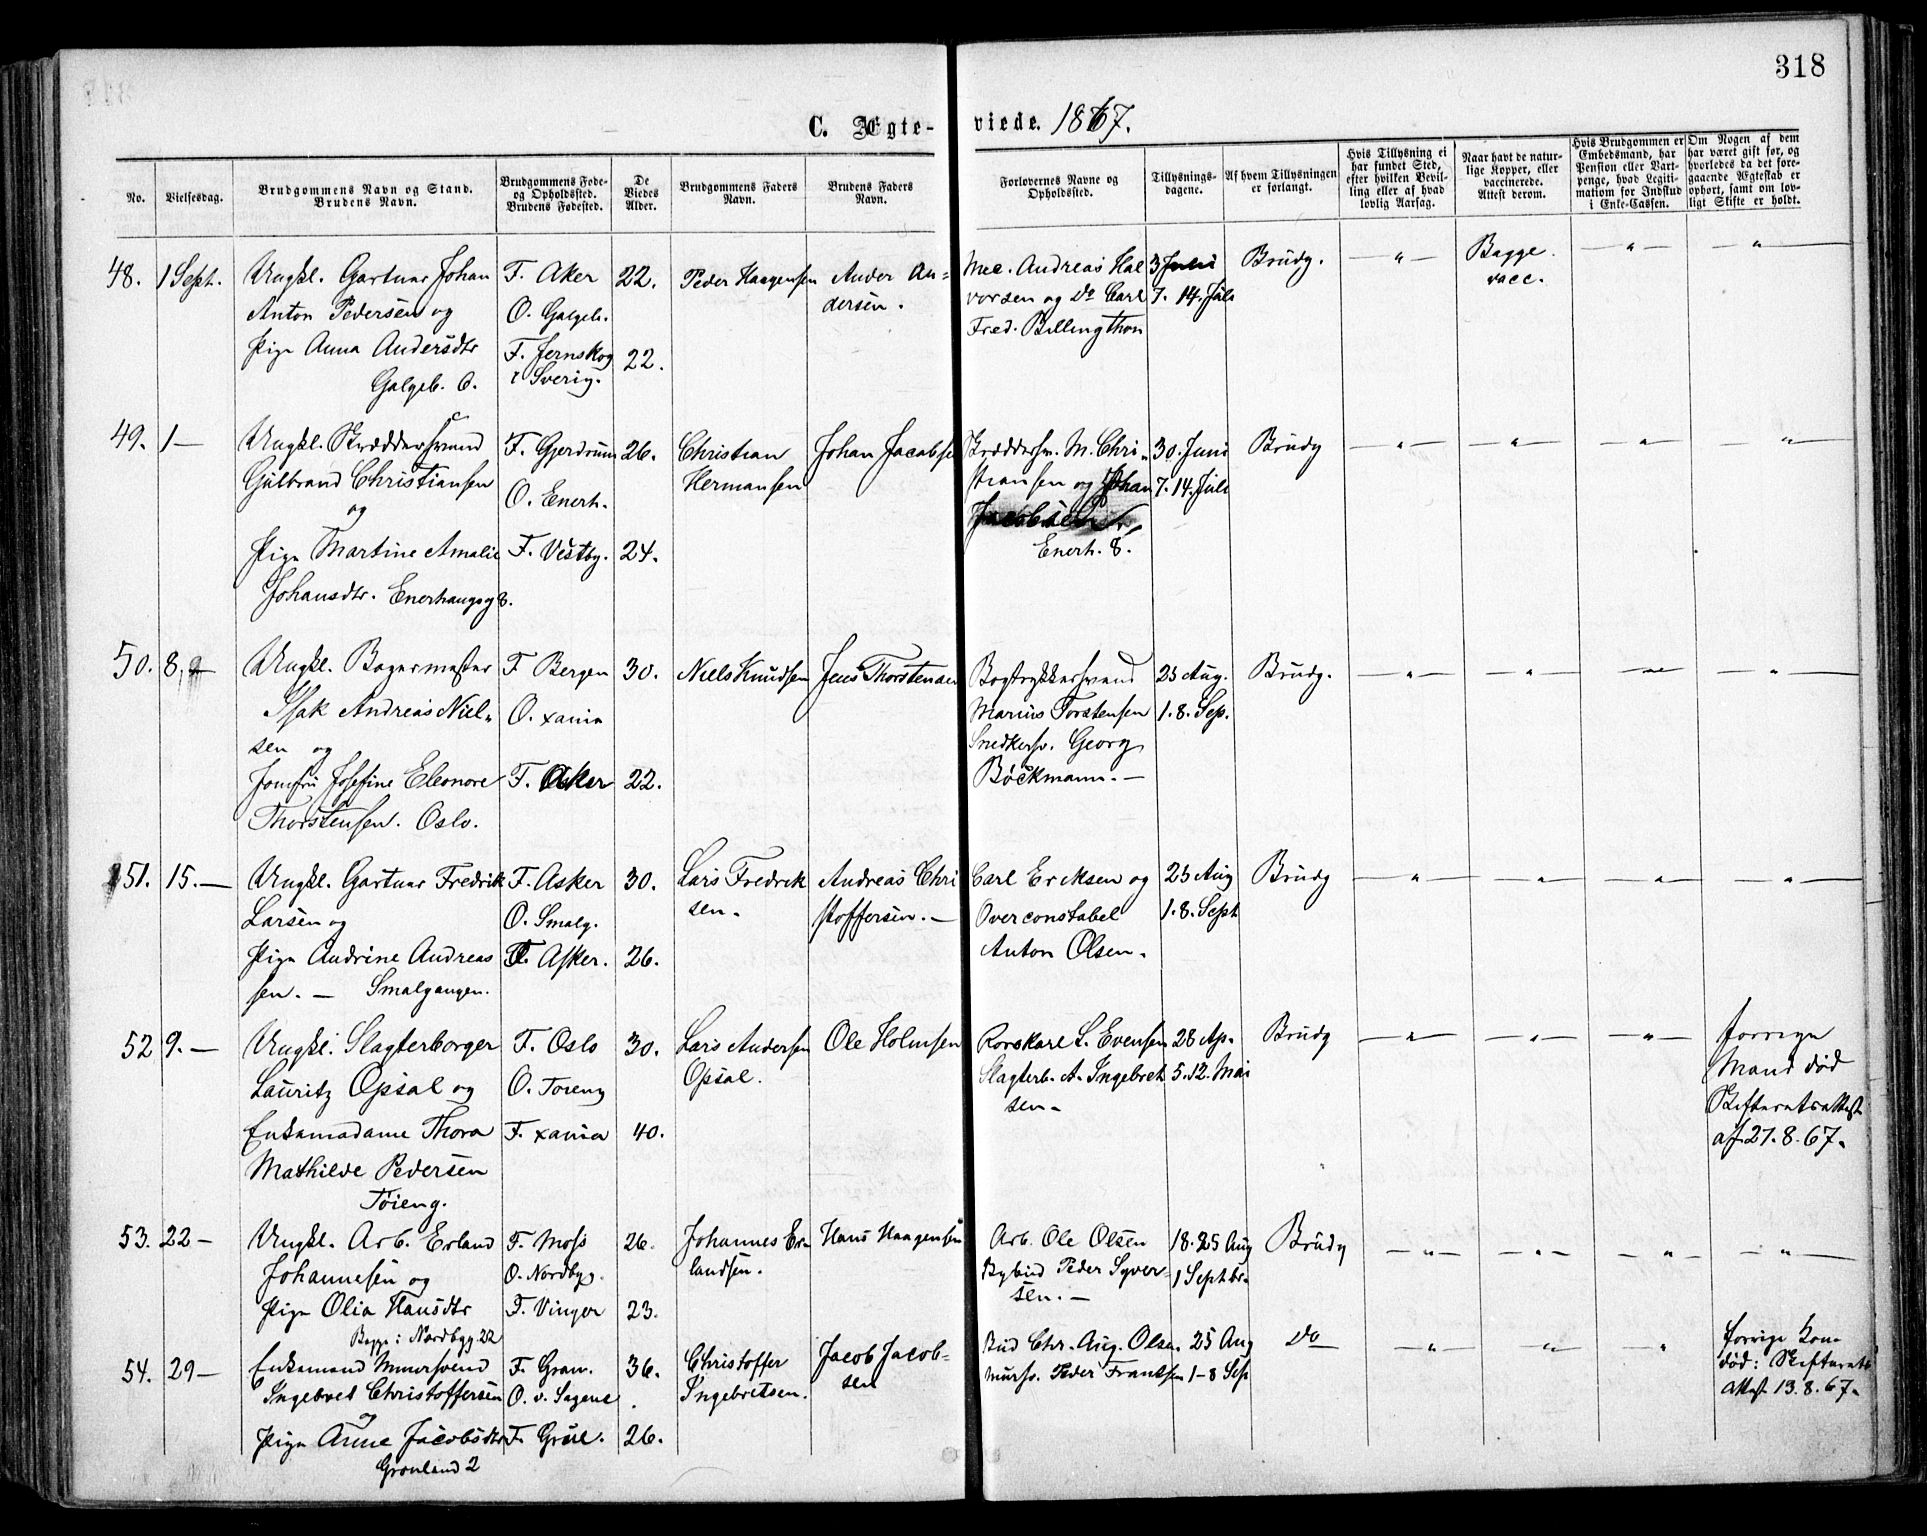 318
C. Ægte-viede. 1867.
No.
Vielsesdag.
Brudgommens Navn og Stand.
Brudens Navn.
Brudgommens Føde-
og Opholdssted.
Brudens Fødested.
De
Viedes
Alder.
Brudgommens Faders
Navn.
Brudens Faders
Navn.
Forlovernes Navne og
Opholdssted.
Tillysnings-
dagene.
Af hvem Tillysningen
er forlangt.
Hvis Tillysning ei
har fundet Sted,
efter hvilken Bevil-
ling eller af hvad
lovlig Aarsag.
Naar havt de natur-
lige Kopper, eller
vaccinerede.
Attest derom.
Hvis Brudgommen er
Embedsmand, har
Pension eller Vart-
penge, hvad Legiti-
mation for Indskud
i Enke-Cassen.
Om Nogen af dem
har været gift før, og
hvorledes da det fore-
gaaende Ægteskab er
ophørt, samt om lov-
ligt Skifte er holdt.
48. 1 Sept.
Ungkl. Gartner Johan
Anton Pedersen og
Pige Anna Andersdtr
Galgeb. 6.
F. Aker
O. Galgeb.
F. Jernskog
i Sverig.
22.
22.
Peder Haagensen
Ander An-
dersen.
Mec. Andreas Hal
vorsen og Do Carl
Fred. Billingthon
7. 14. Juli
Brudg.
Bagge.
vacc.
49. 1 —
Ungkl. Skræddersvend
Gulbrand Christiansen
og
Pige Martine Amalie
Johansdtr. Enerhaugsg 8.
F. Gjerdrum
O. Enerh.
F. Vestby.
26.
24.
Christian
Hermansen
Johan Jacobse
Skræddersv. M. Chri-
stiansen og Johan
Jacobsen
Enerh. 8.
30. Juni
7. 14. Juli
Brudg
50. 8,
Ungkl. Bagermester
Isak Andreas Niel-
sen og
Jomfru Josefine Eleonore
Thorstensen. Oslo.
F Bergen
O. xania
F. Asker
30.
22.
Niels Knudsen
Jens Thorstensen
Bogtrykkersvend
Marius Torstensen
Snedkersv. Georg
Böckmann. —
25 Aug.
1. 8. Sep.
Brudg.
51. 15. —
Ungkl. Gartner Fredrik
Larsen og
Pige Andrine Andreas
sen. — Smalgangen.
F. Asker
O. Smalg.
F. Asker.
30.
26.
Lars Fredrik
sen.
Andreas Chri
stoffersen. —
Carl Eriksen og
Overconstabel
Anton Olsen.
25 Aug
1. 8. Sept
Brudg
52 9. —
Ungkl. Slagterborger
Lauritz Opsal og
Enkemadame Thora
Mathilde Pedersen
Töieng.
F. Oslo
O. Toieng
F. xania
30.
40.
Lars Andersen
Opsal.
Ole Holmsen
Rorskarl L. Evensen
Slagterb. A. Ingebret
sen.
28 Ap.
5. 12. Mai
Brudg
forrige
Mand död
Skifteretsattest
af 27. 8. 67.
53. 22 —
Ungkl. Arb. Erland
Johannesen og
Pige Olia Hansdtr
Begge: Nordbyg. 22
F. Moss
O. Nordbyg.
F. Vinger
26.
23.
Johannes Er-
landsen.
Hans Haagensen
Arb. Ole Olsen
Bybud Peder Syver-
sen. —
18. 25 Aug
1 Septbr.
Brudg
54. 29 —
Enkemand Murersvend
Ingebret Christoffersen
og
Pige Anne Jacobsdtr
Grønland 2
F. Gran.
O. v. Sagene
F. Grue.
36.
26.
Christoffer
Ingebretsen.
Jacob Jacob-
sen
Bud Chr. Aug. Olsen.
Mursv. Peder Frantsen
25 Aug
1-8 Sep
Do
forrige Kone
död: Skifterets
attest 13. 8. 67.